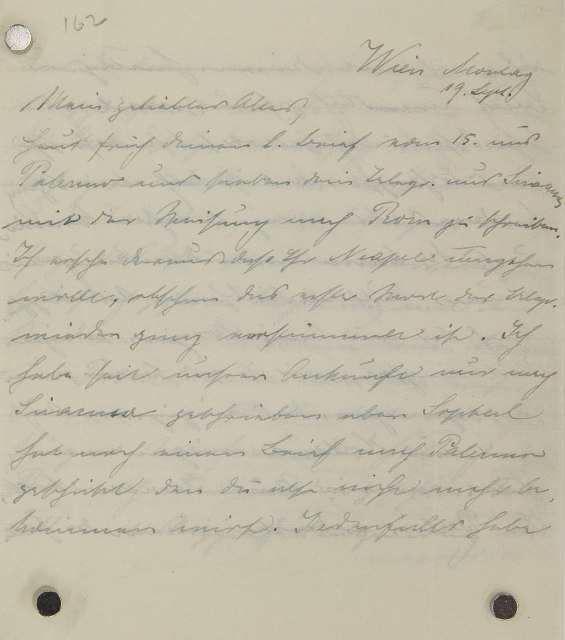 162
Wien Montag
19. Sept.
Mein geliebter Alter,
Heut früh deinen l. Brief vom 15. aus
Palermo und soeben dein Telegr. aus Siracusa
mit der Weisung nach Rom zu schreiben.
Ich ersehe daraus dass Ihr Neapel umgehen
wollt, obschon das erste Wort des Telegr.
wieder ganz verstümmelt ist. Ich
habe seit unsrer Ankunft nur nach
Siracusa geschrieben aber Sopherl
hat noch einen Brief nach Palermo
geschickt den du also nicht mehr be-
kommen wirst. Jedenfalls habe